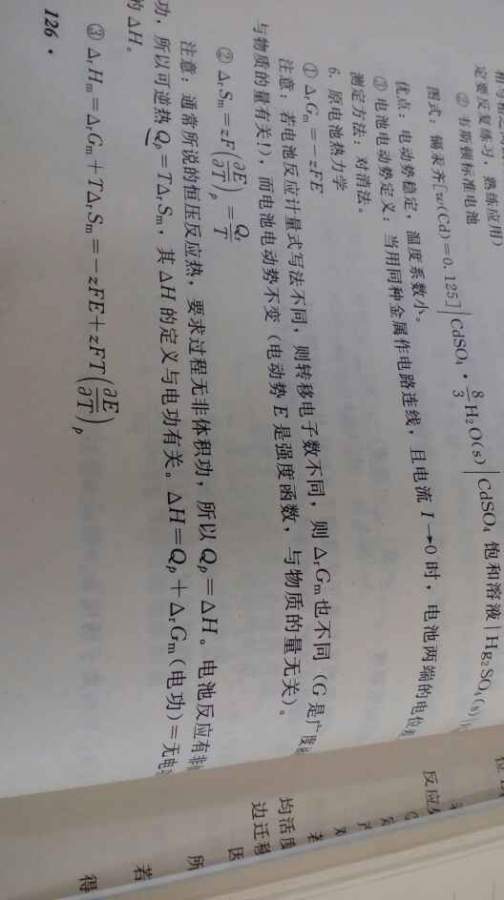 定要反复练习，熟练应用)
② 韦斯顿标准电池
图式：镉汞齐[w(Cd)=0.125]|CdSO₄·8/3H₂O(s)|CdSO₄ 饱和溶液|Hg₂SO₄(s)
优点：电动势稳定，温度系数小。
③ 电池电动势定义：当用同种金属作电路连线，且电流 I→0 时，电池两端的电位
测定方法：对消法。
6. 原电池热力学
① ΔᵣGₘ=－zFE
注意：若电池反应计量式写法不同，则转移电子数不同，则 ΔᵣGₘ也不同（G 是广度
与物质的量有关!），而电池电动势不变（电动势 E 是强度函数，与物质的量无关）。
② ΔᵣSₘ=zF(∂E/∂T)ₚ=Qᵣ/T
注意：通常所说的恒压反应热，要求过程无非体积功，所以 Qₚ=ΔH。电池反应有非
功，所以可逆热 Qₚ=TΔᵣSₘ，其 ΔH 的定义与电功有关。ΔH=Qₚ+ΔᵣGₘ(电功)=无电
的 ΔH。
③ ΔᵣHₘ=ΔᵣGₘ+TΔᵣSₘ=－zFE+zFT(∂E/∂T)ₚ
126·
反应
均活度
边迁移
因
所
若
得